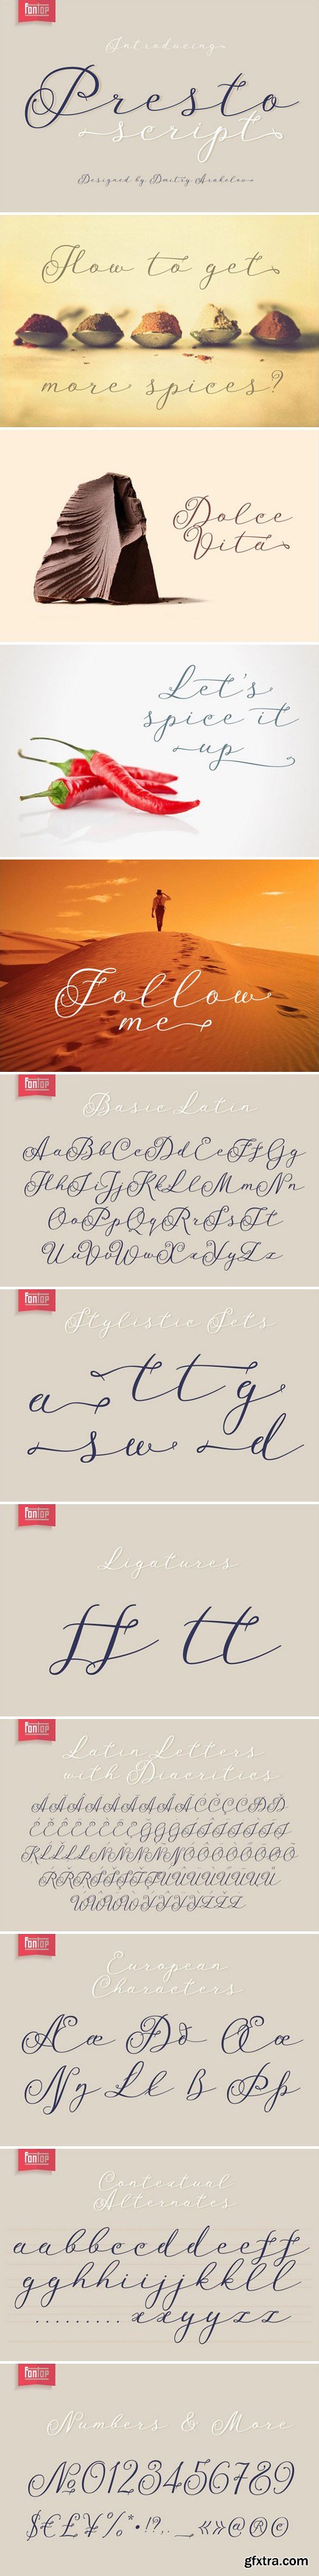 fontop
Introducing
Presto
script
Designed by Dmitriy Arakelov
How to get
more spices?
Dolce
Vita
Let's
spice it
up
Follow
me
fontop
Basic Latin
AaBbCcDdEeFfGg
HhIiJjKkLlMmNn
OoPpQqRrSsTt
UuVvWwXxYyZz
fontop
Stylistic Sets
a t t g
s w d
fontop
Ligatures
ff tt
fontop
Latin Letters
with Diacritics
fontop
European
Characters
Ææ Đð Œœ
Ŋŋ Łł ß Þþ
fontop
Contextual
Alternates
aabbccddeeff
gghhiijjkkll
......... xxyyzz
fontop
Numbers & More
№0123456789
$€£¥%*•!?,._«»@®©
gfxtra.com